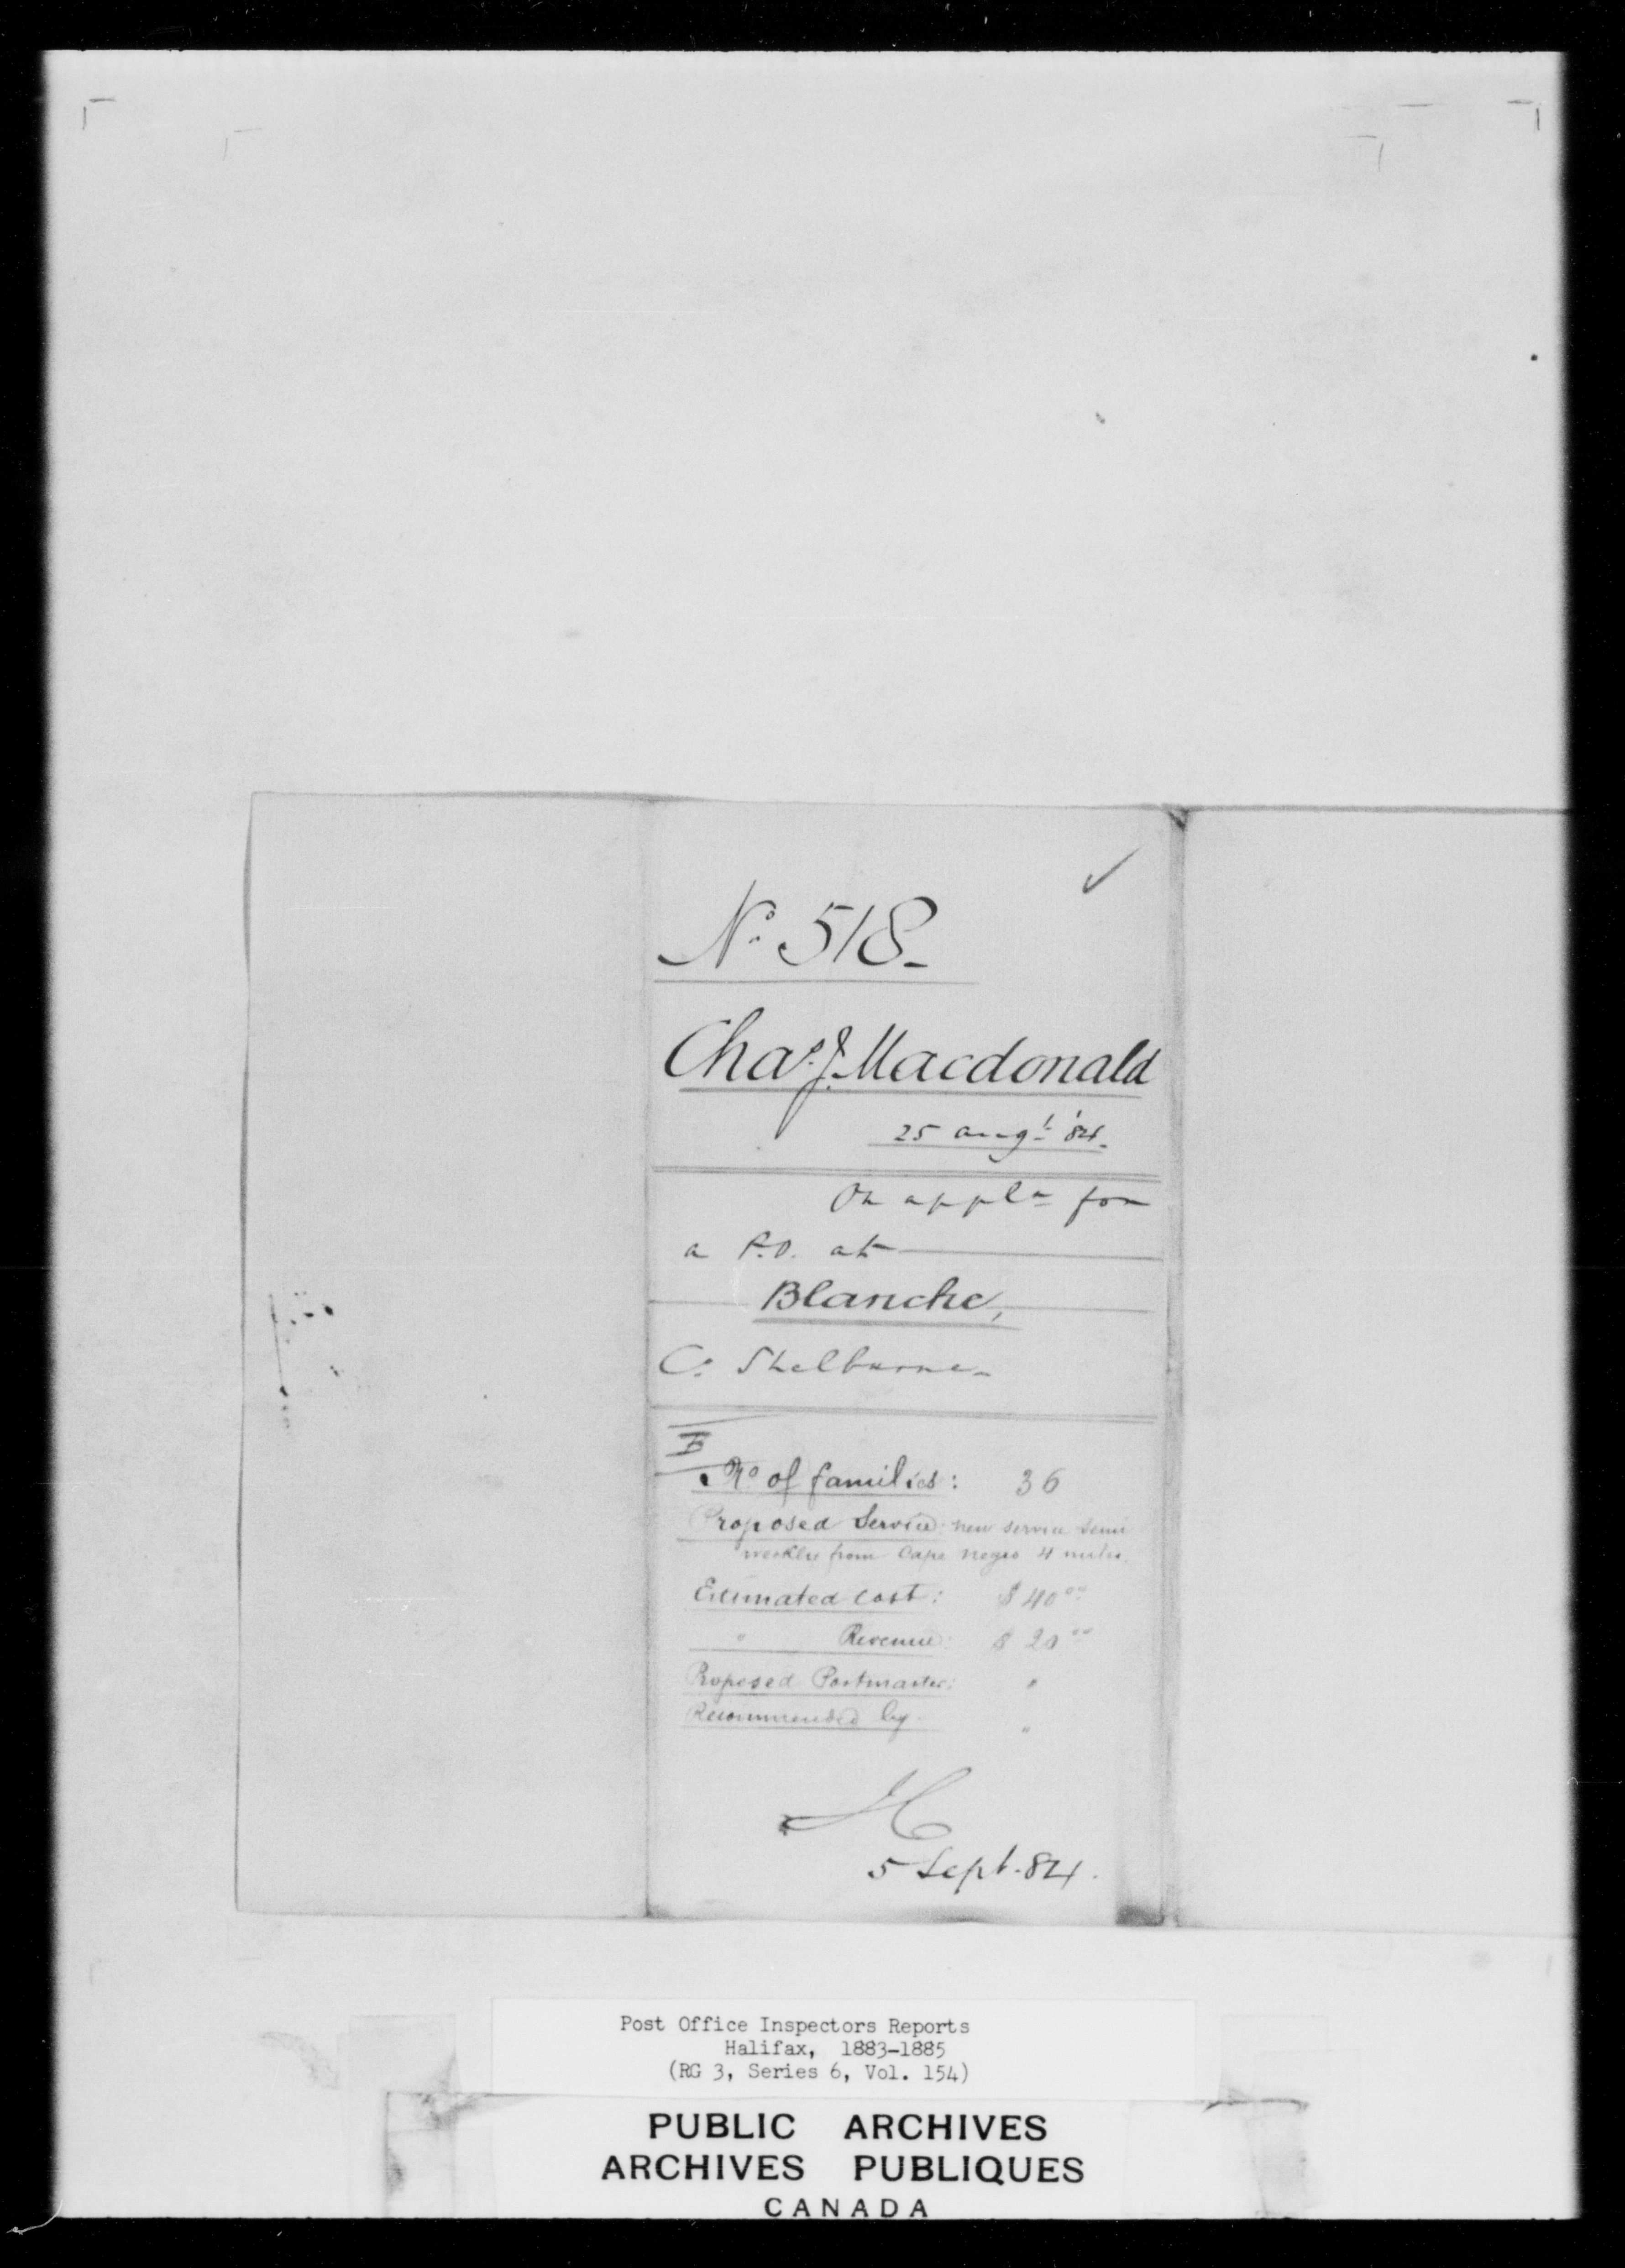 ✓
No. 518-
Chas. J. Macdonald
25 Augt '84.
On appln for
a P.O. at
Blanche,
Co. Shelburne-
No of families: 36
Proposed Service: new service semi
weekly from Cape Negro 4 miles.
Estimated cost: $40.00
" Revenue: $20.00
Proposed Postmaster: "
Recommended by "
5 Sept. 84.
Post Office Inspectors Reports
Halifax, 1883-1885
(RG 3, Series 6, Vol. 154)
PUBLIC ARCHIVES
ARCHIVES PUBLIQUES
CANADA